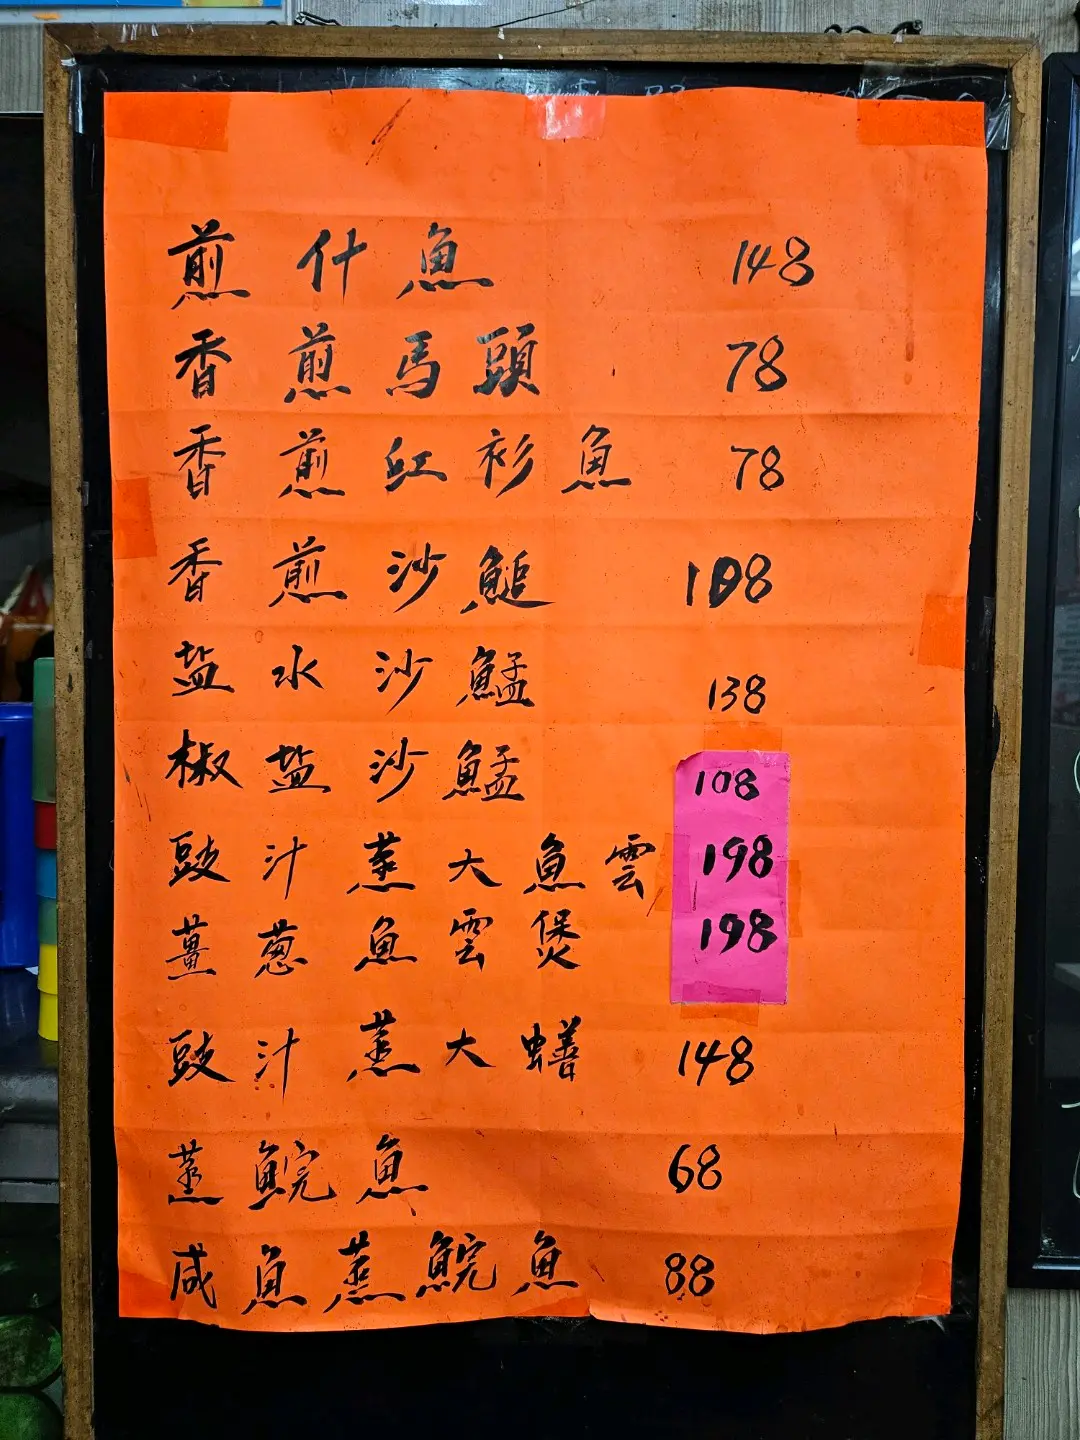 煎什魚 148
香煎馬頭 78
香煎紅衫魚 78
香煎沙鎚 108
盐水沙鯭 138
椒盐沙鯭 108
豉汁蒸大魚雲 198
薑葱魚雲煲 198
豉汁蒸大蟮 148
蒸鯇魚 68
咸魚蒸鯇魚 88